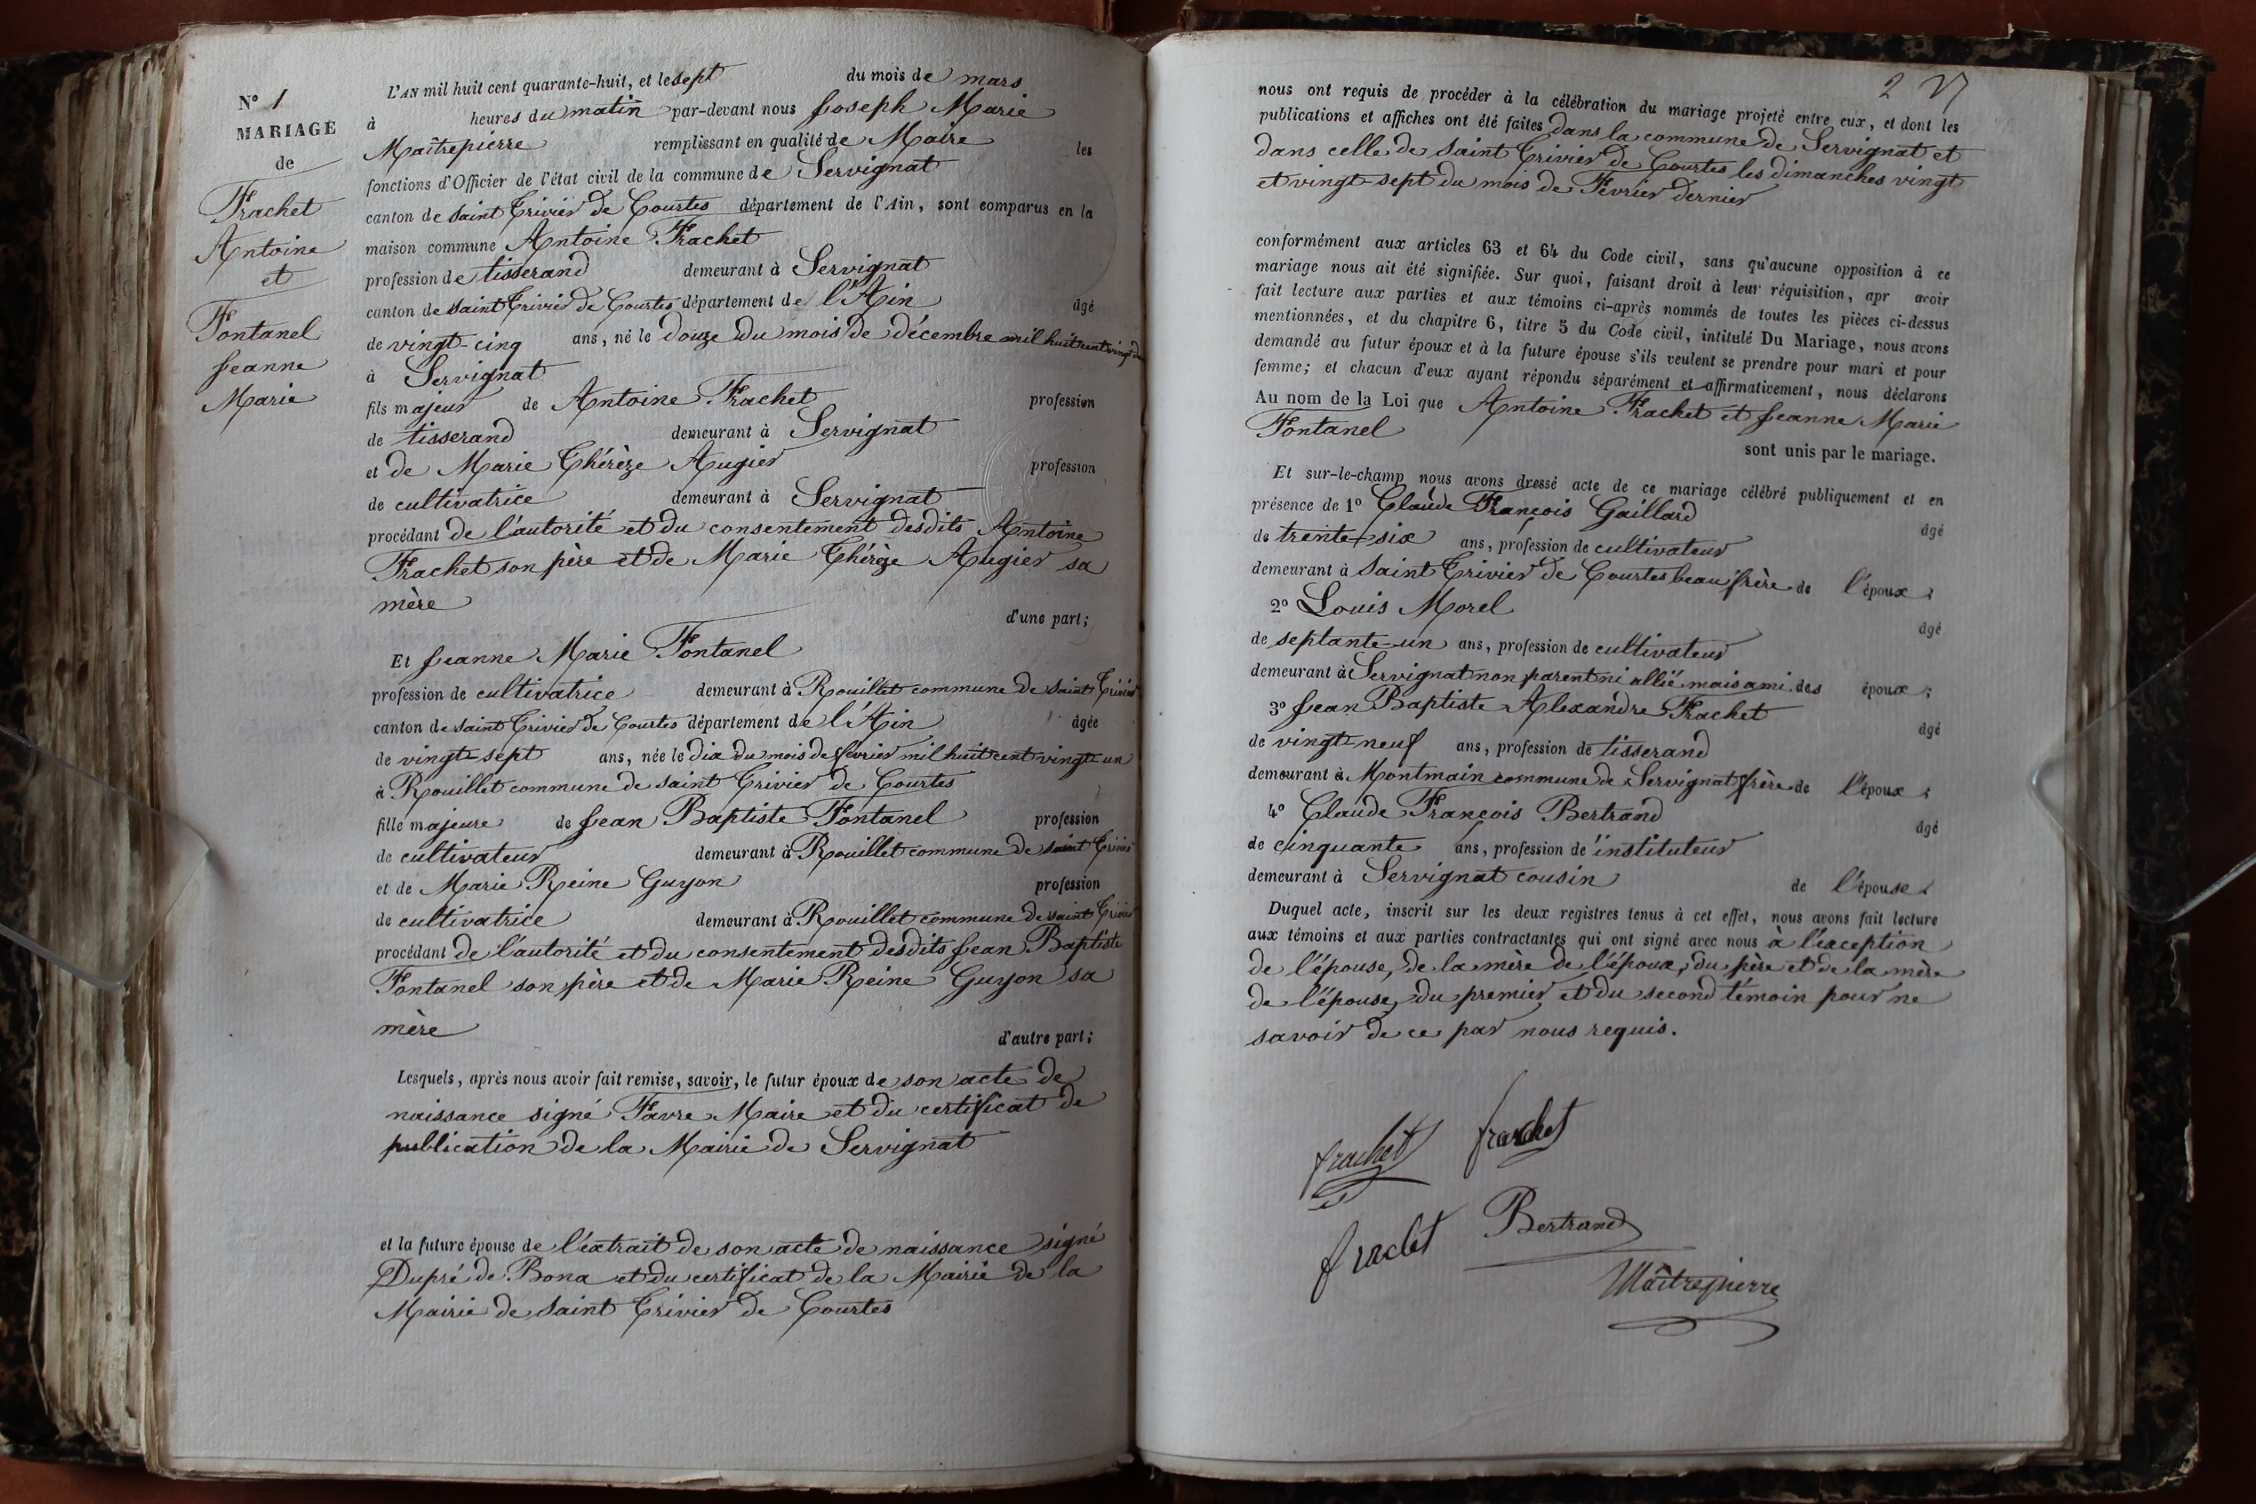 N° 1
MARIAGE
de
Frachet
Antoine
et
Fontanel
Jeanne
Marie
L'AN mil huit cent quarante-huit, et le sept du mois de mars
à heures du matin par-devant nous Joseph Marie
Maîtrepierre remplissant en qualité de Maire les
fonctions d'Officier de l'état civil de la commune de Servignat
canton de saint Trivier de Courtes département de l'Ain, sont comparus en la
maison commune Antoine Frachet
profession de tisserand demeurant à Servignat
canton de saint Trivier de Courtes département de l'Ain âgé
de vingt-cinq ans, né le douze du mois de décembre mil huit cent vingt
à Servignat
fils majeur de Antoine Frachet profession
de tisserand demeurant à Servignat
et de Marie Thérèze Augier profession
de cultivatrice demeurant à Servignat
procédant de l'autorité et du consentement desdits Antoine
Frachet son père et de Marie Thérèze Augier sa
mère d'une part;
Et Jeanne Marie Fontanel
profession de cultivatrice demeurant à Rouillet commune de saint Trivier
canton de saint Trivier de Courtes département de l'Ain âgée
de vingt-sept ans, née le dix du mois de février mil huit cent vingt-un
à Rouillet commune de saint Trivier de Courtes
fille majeure de Jean Baptiste Fontanel profession
de cultivateur demeurant à Rouillet commune de saint Trivier
et de Marie Reine Guyon profession
de cultivatrice demeurant à Rouillet commune de saint Trivier
procédant de l'autorité et du consentement desdits Jean Baptiste
Fontanel son père et de Marie Reine Guyon sa
mère d'autre part;
Lesquels, après nous avoir fait remise, savoir, le futur époux de son acte de
naissance signé Favre Maire et du certificat de
publication de la Mairie de Servignat
et la future épouse de l'extrait de son acte de naissance signé
Dupré de Bona et du certificat de la Mairie de la
Mairie de saint Trivier de Courtes
2
nous ont requis de procéder à la célébration du mariage projeté entre eux, et dont les
publications et affiches ont été faites dans la commune de Servignat et
dans celle de saint Trivier de Courtes les dimanches vingt
et vingt-sept du mois de Février dernier
conformément aux articles 63 et 64 du Code civil, sans qu'aucune opposition à ce
mariage nous ait été signifiée. Sur quoi, faisant droit à leur réquisition, apr avoir
fait lecture aux parties et aux témoins ci-après nommés de toutes les pièces ci-dessus
mentionnées, et du chapitre 6, titre 5 du Code civil, intitulé Du Mariage, nous avons
demandé au futur époux et à la future épouse s'ils veulent se prendre pour mari et pour
femme; et chacun d'eux ayant répondu séparément et affirmativement, nous déclarons
Au nom de la Loi que Antoine Frachet et Jeanne Marie
Fontanel
sont unis par le mariage.
Et sur-le-champ nous avons dressé acte de ce mariage célébré publiquement et en
présence de 1° Claude François Gaillard âgé
de trente-six ans, profession de cultivateur
demeurant à saint Trivier de Courtes beau frère de l'époux;
2° Louis Morel âgé
de septante-un ans, profession de cultivateur
demeurant à Servignat non parent ni allié mais ami des époux;
3° Jean Baptiste Alexandre Frachet âgé
de vingt-neuf ans, profession de tisserand
demeurant à Montmain commune de Servignat frère de l'époux;
4° Claude François Bertrand âgé
de cinquante ans, profession de instituteur
demeurant à Servignat cousin de l'épouse.
Duquel acte, inscrit sur les deux registres tenus à cet effet, nous avons fait lecture
aux témoins et aux parties contractantes qui ont signé avec nous à l'exception
de l'épouse, de la mère de l'époux, du père et de la mère
de l'épouse, du premier et du second témoin pour ne
savoir de ce par nous requis.
frachet frachet
frachet Bertrand
Maîtrepierre